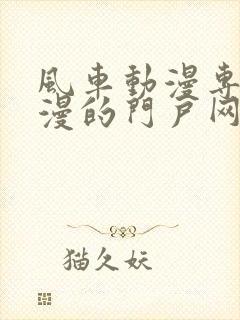 風車動漫專
漫的門戶网
猫久妖